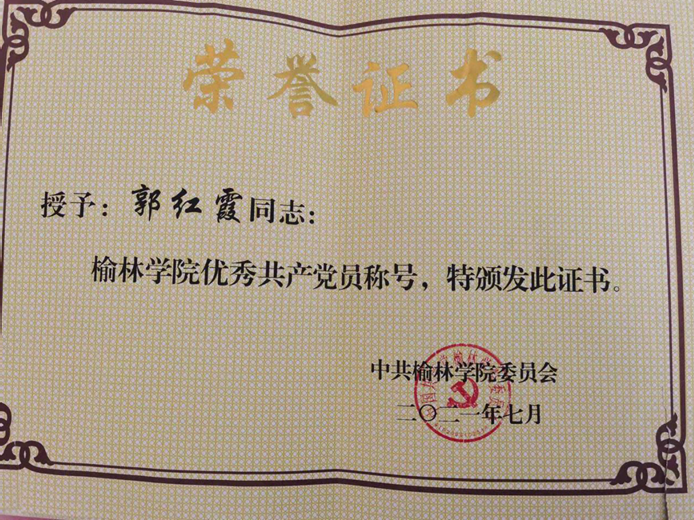 荣誉证书
授予：郭红霞同志：
榆林学院优秀共产党员称号，特颁发此证书。
中共榆林学院委员会
二〇二一年七月